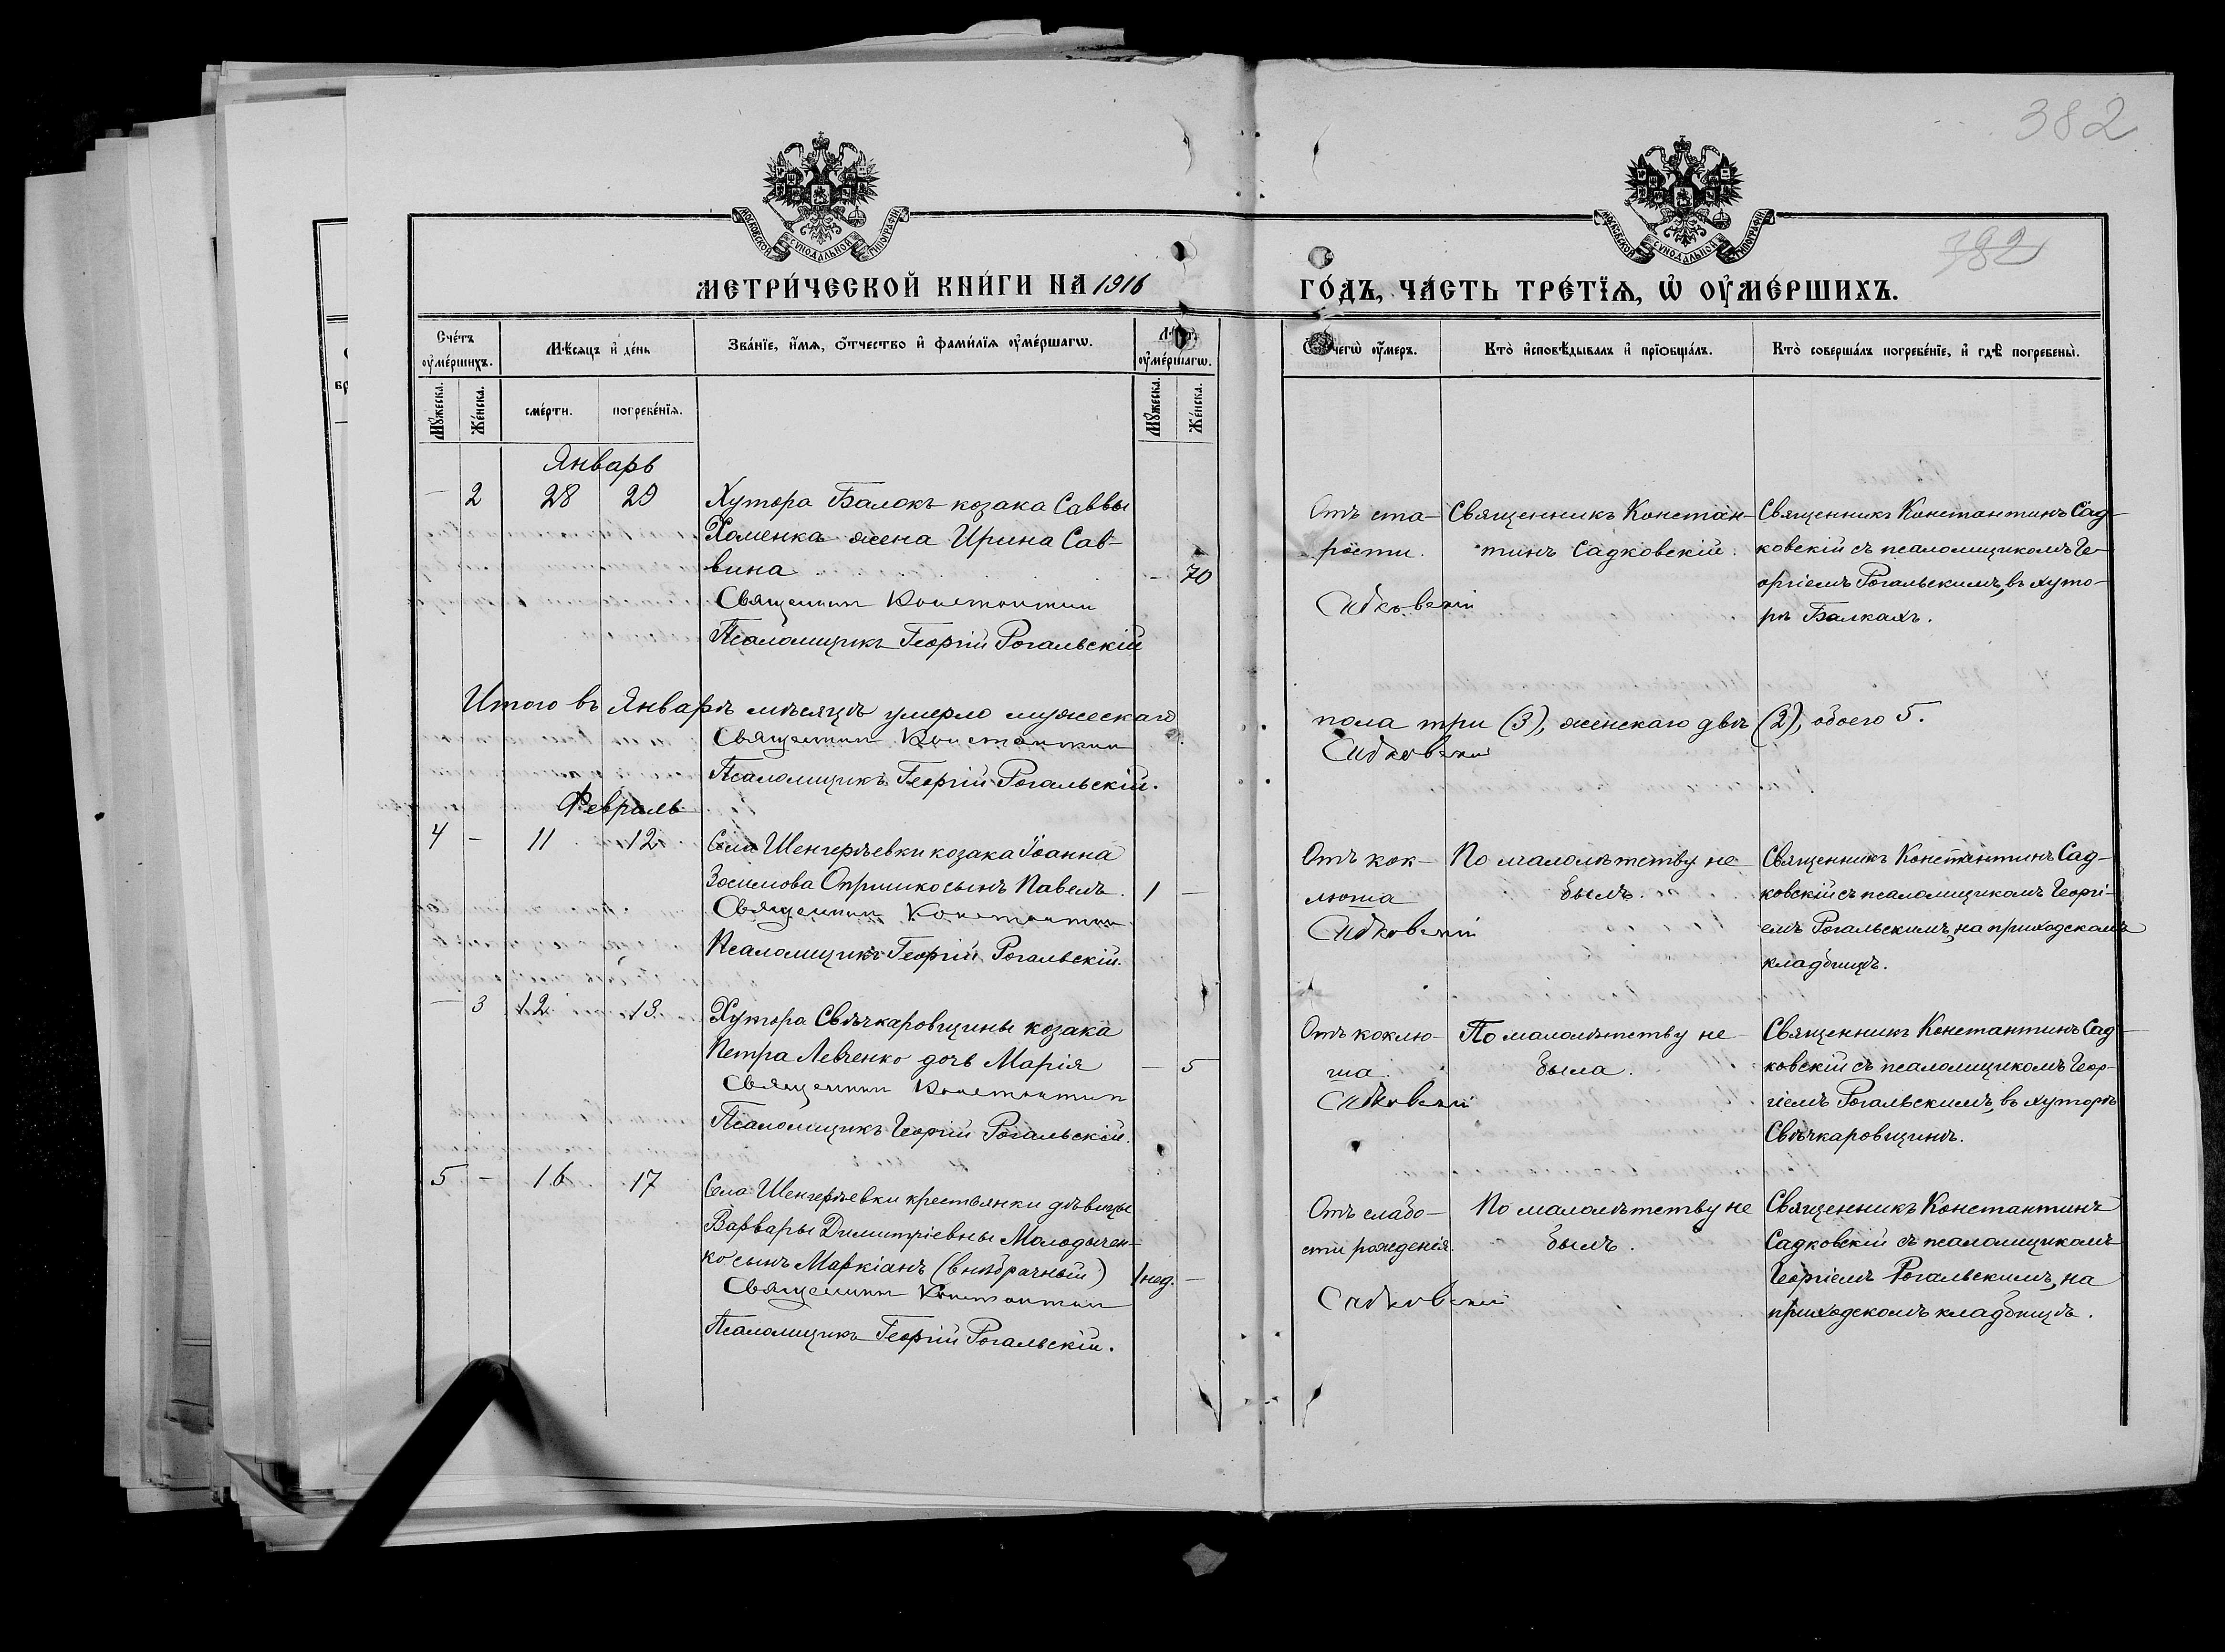 382
382
МОСКОВСКОЙ СѴНОДАЛЬНОЙ ТИПОГРАФІИ
МОСКОВСКОЙ СѴНОДАЛЬНОЙ ТИПОГРАФІИ
МЕТРИ́ЧЕСКОЙ КНИ́ГИ НА 1916
ГО́ДЪ, ЧА́СТЬ ТРЕ́ТІѦ, Ѡ҆ ОУ҆МЕ́РШИХЪ.
Сче́тъ оу҆ме́ршихъ.
Мѣ́сяцъ и҆ де́нь
Зва́нїе, и҆́мѧ, ѻ҆́тчество и҆ фами́лїѧ оу҆ме́ршагѡ.
оу҆ме́ршагѡ.
чегѡ̀ оу҆́меръ.
Кто̀ и҆сповѣ́дывалъ и҆ прїѡбща́лъ.
Кто̀ соверша́лъ погребе́нїе, и҆ гдѣ̀ погребены̀.
Мꙋ́жеска.
Же́нска.
сме́рти.
погребе́нїѧ.
Мꙋ́жеска.
Же́нска.
Январь
— 2 28 29 Хутора Балокъ козака Саввы
Хоменка жена Ирина Сав-
вина — 70
Священник Константин
Псаломщикъ Георгій Рогальскій
Отъ ста-
рости.
Садковскій
Священникъ Констан-
тинъ Садковскій.
Священникъ Константинъ Сад-
ковскій съ псаломщикомъ Ге-
оргіемъ Рогальскимъ, въ хуто-
рѣ Балкахъ.
Итого въ Январѣ мѣсяцѣ умерло мужескаго
пола три (3), женскаго двѣ (2), обоего 5.
Священник Константин
Садковскій
Псаломщикъ Георгій Рогальскій.
Февраль
4 — 11 12 Села Шенгерѣевки козака Іоанна
Зосимова Опришко сынъ Павелъ. 1 —
Священник Константин
Псаломщикъ Георгій Рогальскій.
Отъ кок-
люша
Садковскій
По малолѣтству не
былъ.
Священникъ Константинъ Сад-
ковскій съ псаломщикомъ Георгі-
емъ Рогальскимъ, на приходскомъ
кладбищѣ.
— 3 12 13 Хутора Свѣчкаровщины козака
Петра Левченко дочь Марія — 5
Священник Константин
Псаломщикъ Георгій Рогальскій.
Отъ коклю-
ша.
Садковскій
По малолѣтству не
была.
Священникъ Константинъ Сад-
ковскій съ псаломщикомъ Геор-
гіемъ Рогальскимъ, въ хуторѣ
Свѣчкаровщинѣ.
5 — 16 17 Села Шенгерѣевки крестьянки дѣвицы
Варвары Димитріевны Молодычен-
ко сынъ Маркіанъ (внѣбрачный) 1 нед. —
Священник Константин
Псаломщикъ Георгій Рогальскій.
Отъ слабо-
сти рожденія.
Садковскій
По малолѣтству не
былъ.
Священникъ Константинъ
Садковскій съ псаломщикомъ
Георгіемъ Рогальскимъ, на
приходскомъ кладбищѣ.